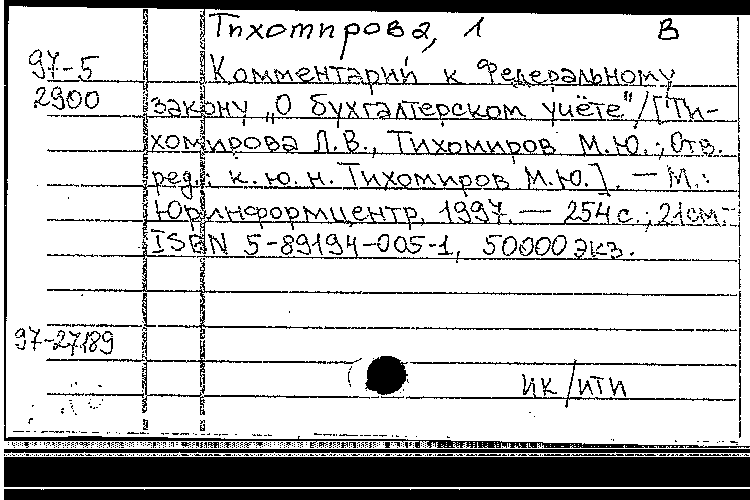 Тихомирова, 1 В
97-5 Комментарий к Федеральному
2900 закону „О бухгалтерском учёте"/[Ти-
хомирова Л.В., Тихомиров М.Ю.; Отв.
ред.: к.ю.н. Тихомиров М.Ю.]. — М.:
Юринформцентр, 1997. — 254 с.; 21 см.-
ISBN 5-89194-005-1, 50000 экз.
97-27189
ИК/ИТИ